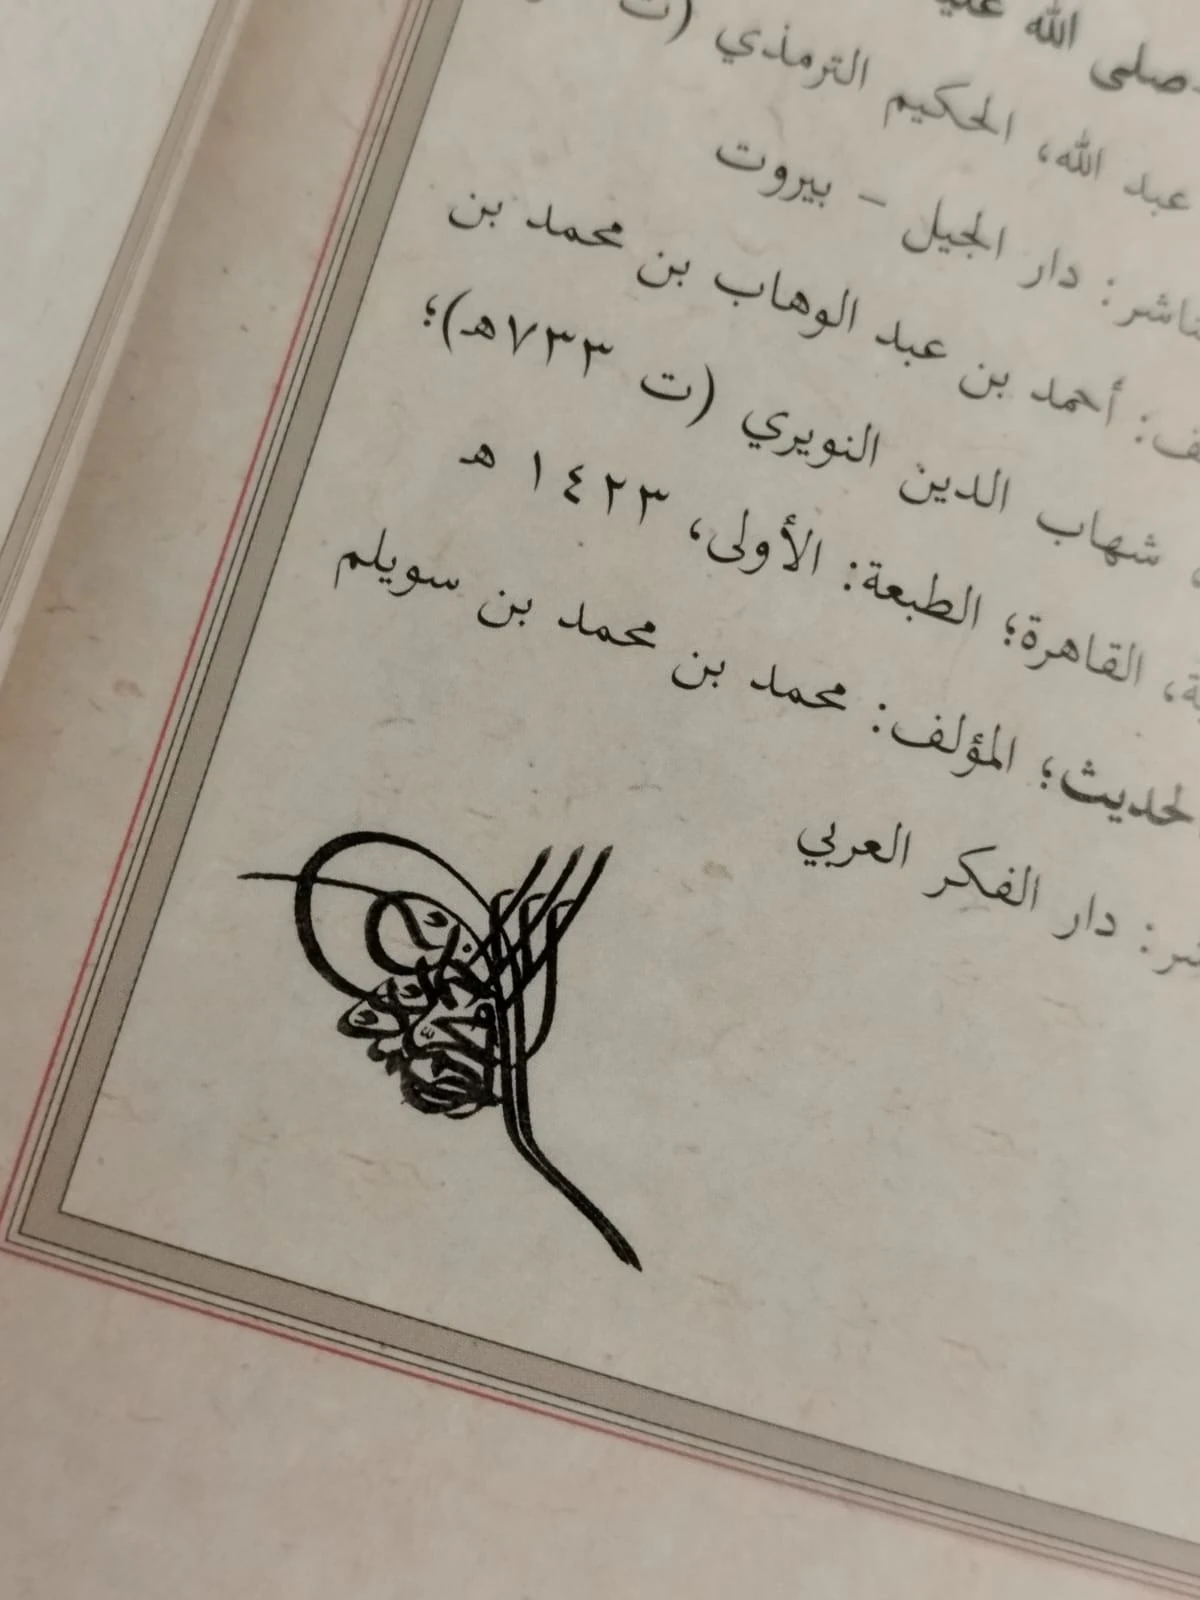 صلى الله
عبد الله، الحكيم الترمذي (ت
دار الجيل - بيروت
أحمد بن عبد الوهاب بن محمد بن
شهاب الدين النويري (ت ٧٣٣هـ)؛
القاهرة؛ الطبعة: الأولى، ١٤٢٣ هـ
لحديث؛ المؤلف: محمد بن محمد بن سويلم
دار الفكر العربي